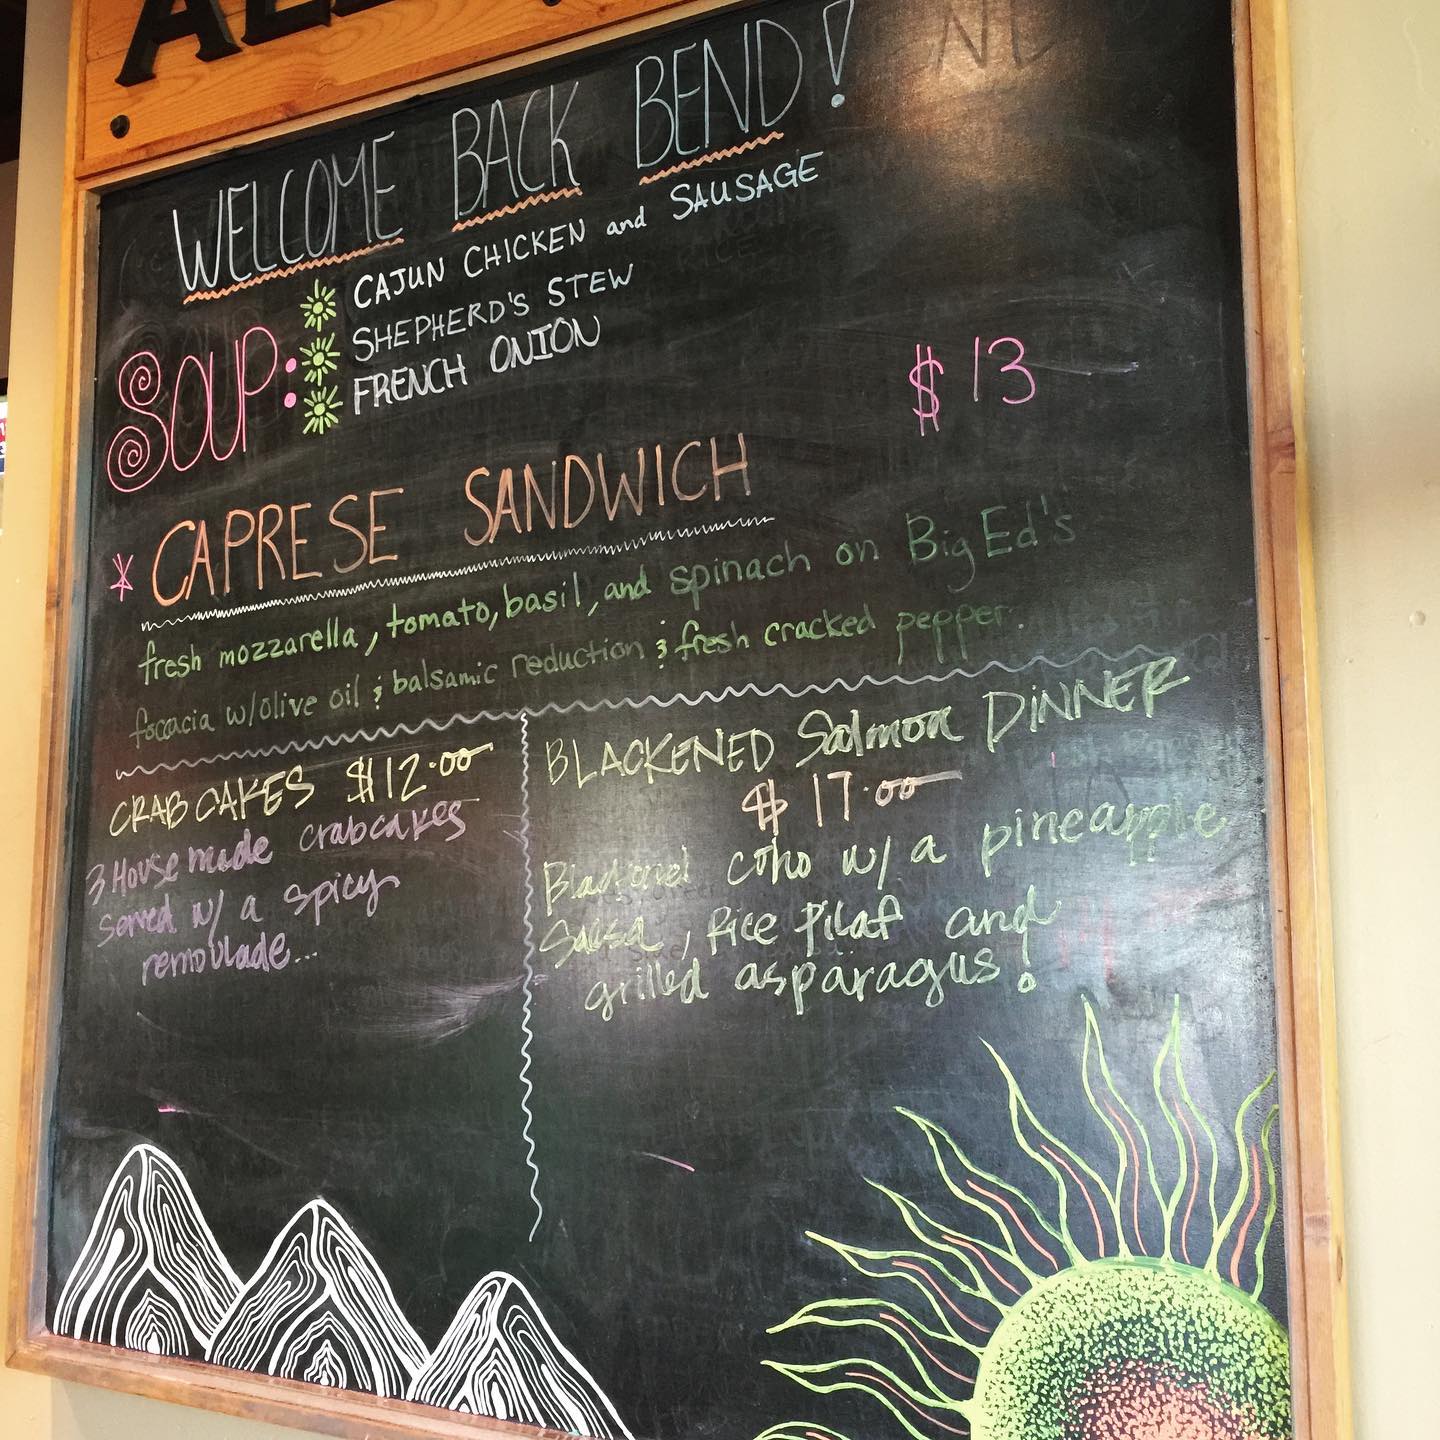 WELCOME BACK BEND!
SOUP:
CAJUN CHICKEN and SAUSAGE
SHEPHERD'S STEW
FRENCH ONION
* CAPRESE SANDWICH $13
fresh mozzarella, tomato, basil, and spinach on Big Ed's
foccacia w/olive oil & balsamic reduction & fresh cracked pepper.
CRAB CAKES $12.00
3 House made crabcakes
served w/ a spicy
remoulade...
BLACKENED Salmon DINNER
$17.00
Blackened coho w/ a pineapple
Salsa, Rice Pilaf and
grilled asparagus!